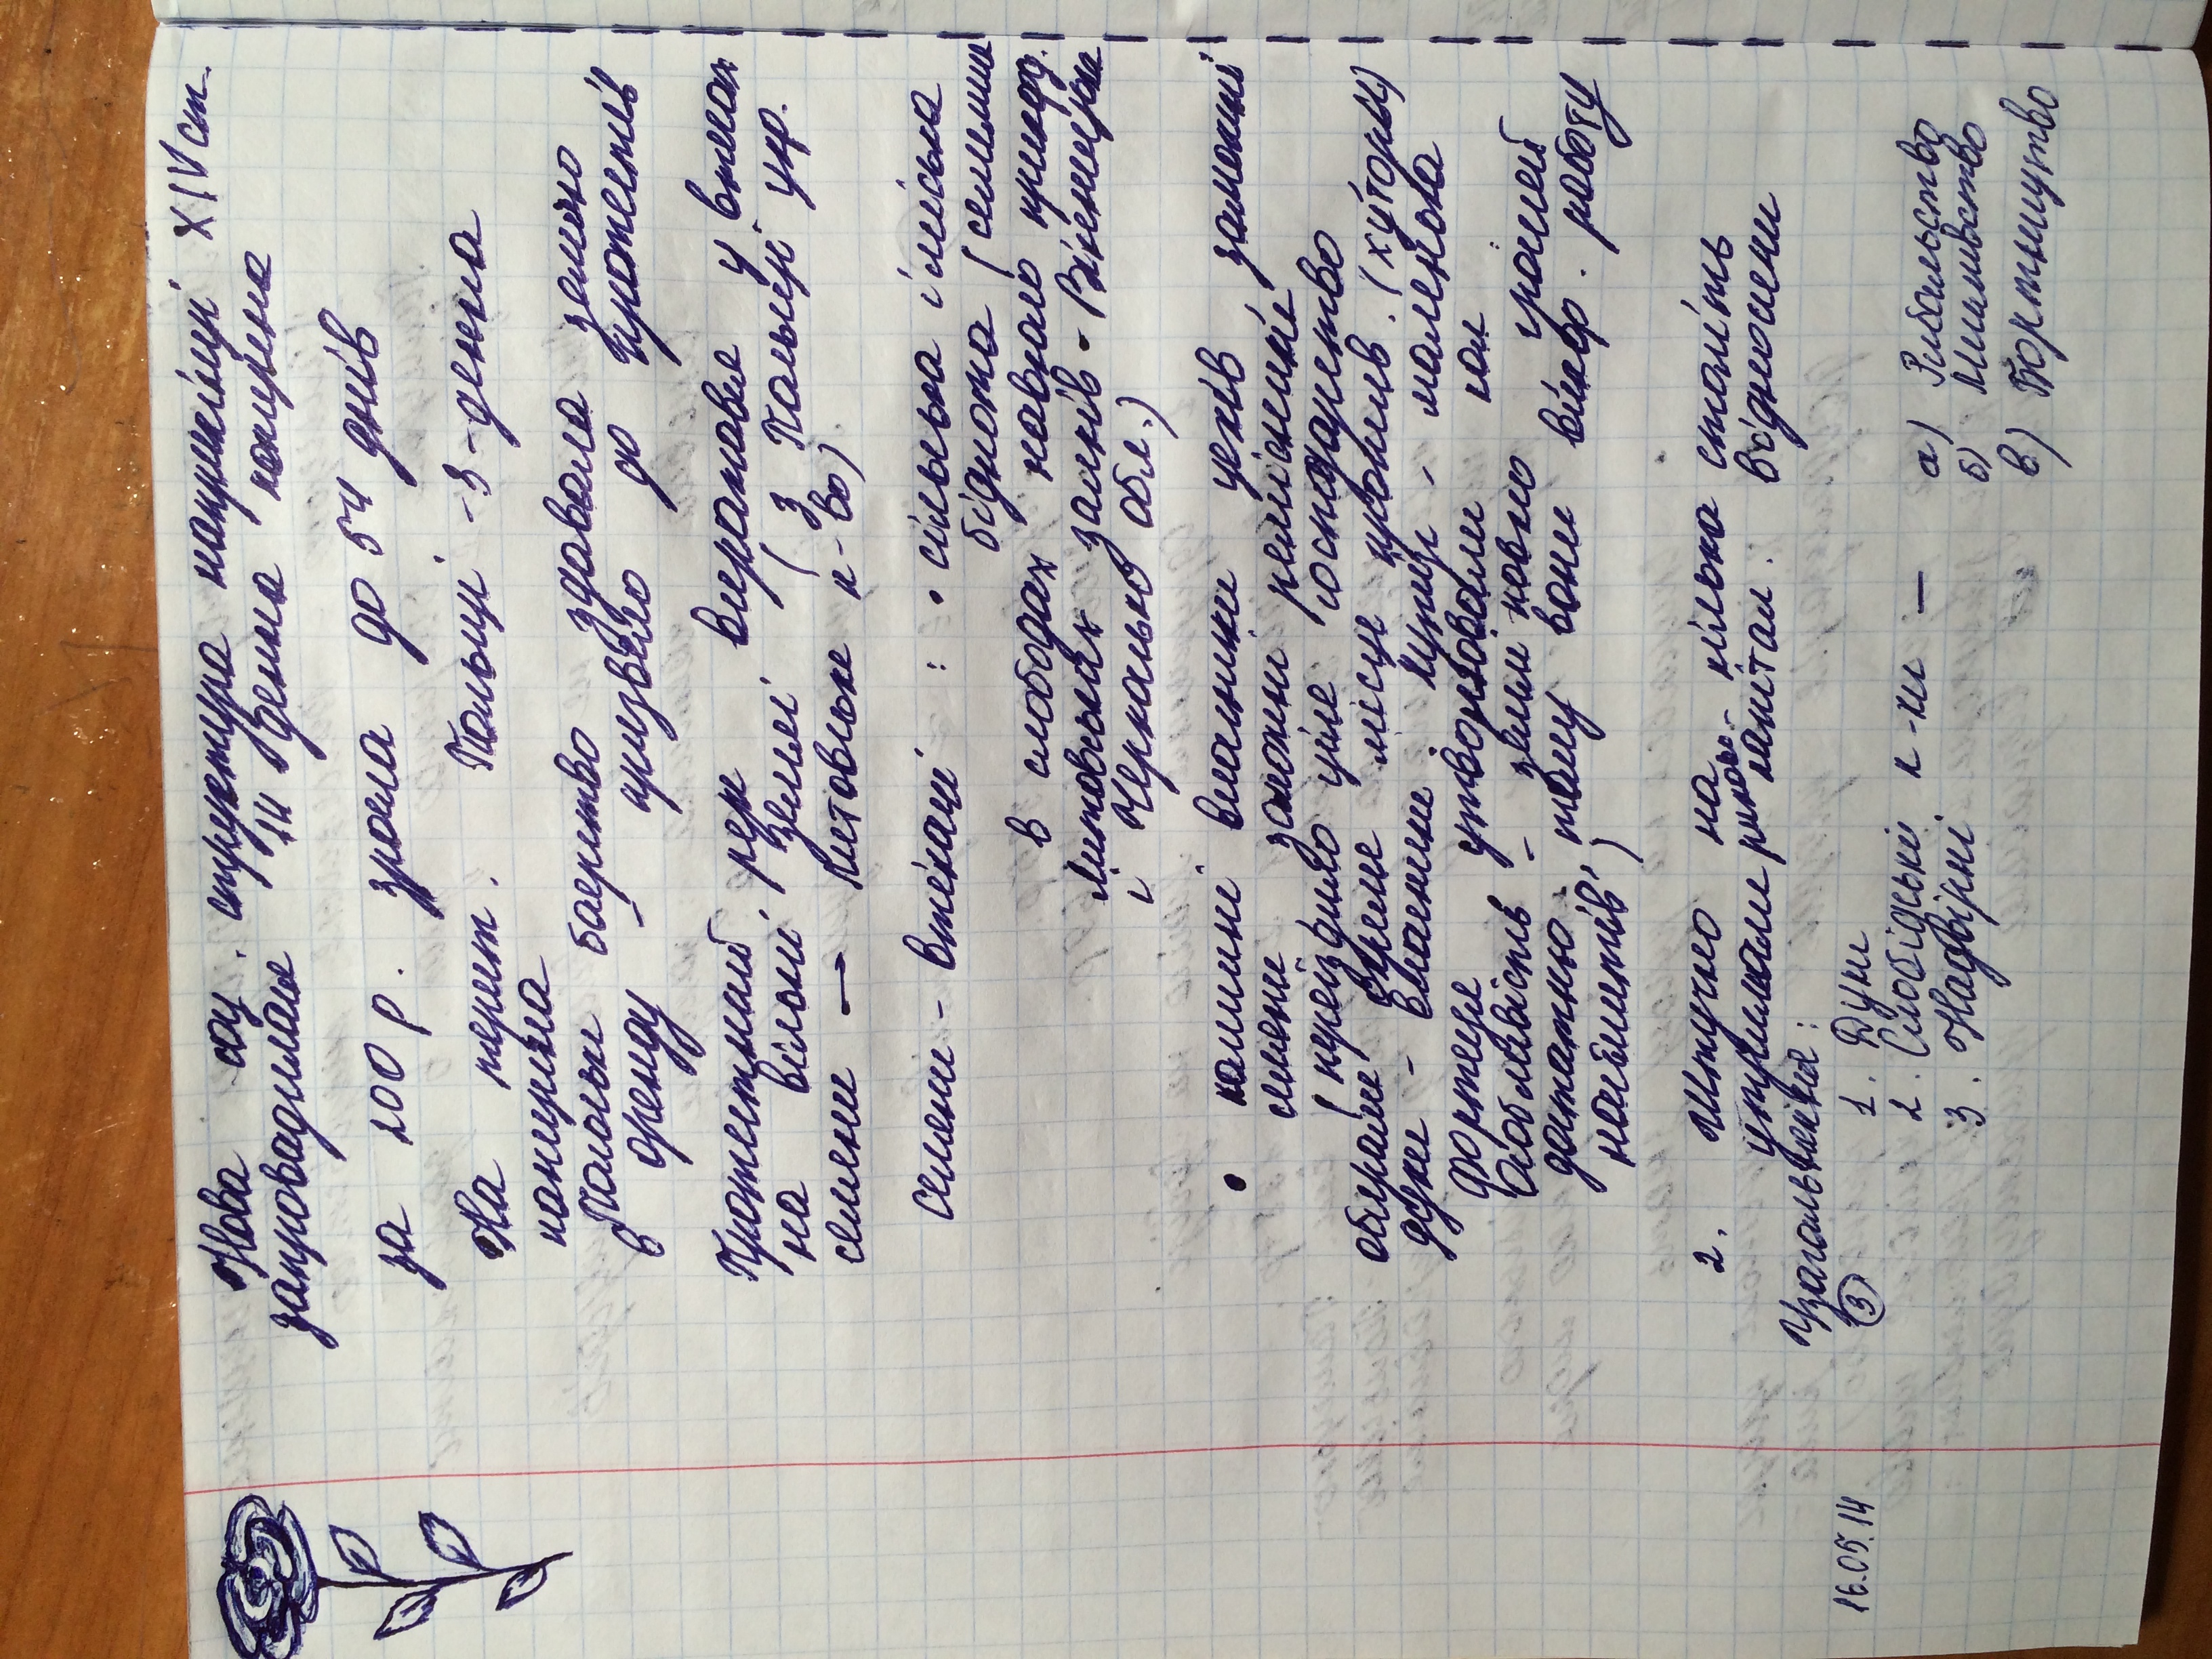 Нова соц. структура наприкінці XIV ст.
запровадилася 14 денна панщина
за 200 р. зросла до 54 днів
На терит. Польщі - 3 - денна
панщина
Польське боярство здавала землю
в оренду - призвело до протестів
Протестний рух виражався у втечах
на вільні землі ( з Польщі укр.
селяни → Литовське к-во)
Селяни - втікачі : • сільська і міська
біднота ( селилися
в слободах навколо
Литовських замків - Вінницька
і Черкаська обл.)
• колишні власники цехів, заможні
селяни, заможні ремісники
( переїздило ціле господарство
обирали окреме місце прожив. (хуторы)
дуки - власники. Хутір - маленька
фортеця, утворювали
Особливість - землі повно, грошей
достатньо, тому вони викор. работу
наймитів )
2. Штучно на кілька століть
утримали ринково - капітал. відносини
Узагальнення:
16.05.14 (3) 1. Дуки
2. Слобідські к-ки — а) Рибальство
3. Надвірні б) Мисливство
в) Бортництво